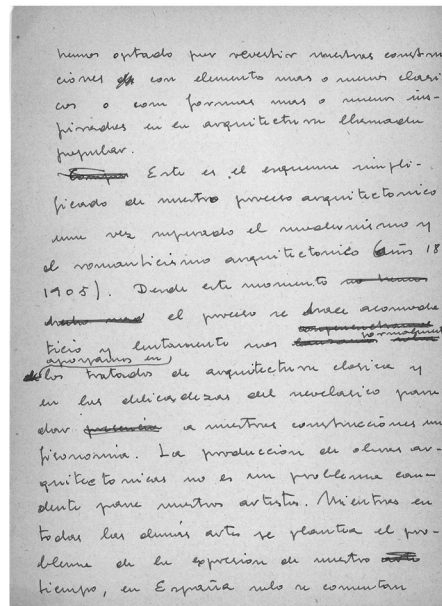 hemos optado por revestir nuestras constru
ciones con elemento mas o menos clasi
cos o con formas mas o menos ins-
piradas en en arquitectura llamada
popular.
Este es el esquema simpli-
ficado de nuestro proceso arquitectonico
una vez superado el modernismo y
el romanticismo arquitectonico (año 18
1905). Desde este momento
el proceso se hace acomoda
ticio y lentamente nos
apoyamos en formalmente
los tratados de arquitectura clasica y
en las delicadezas del neoclasico para
dar a nuestras construcciones un
fisonomia. La produccion de obras ar-
quitectonicas no es un problema can-
dente para nuestros artistas. Mientras en
todas las demás artes se plantea el pro-
blema de la expresion de nuestro
tiempo, en España solo se comentan